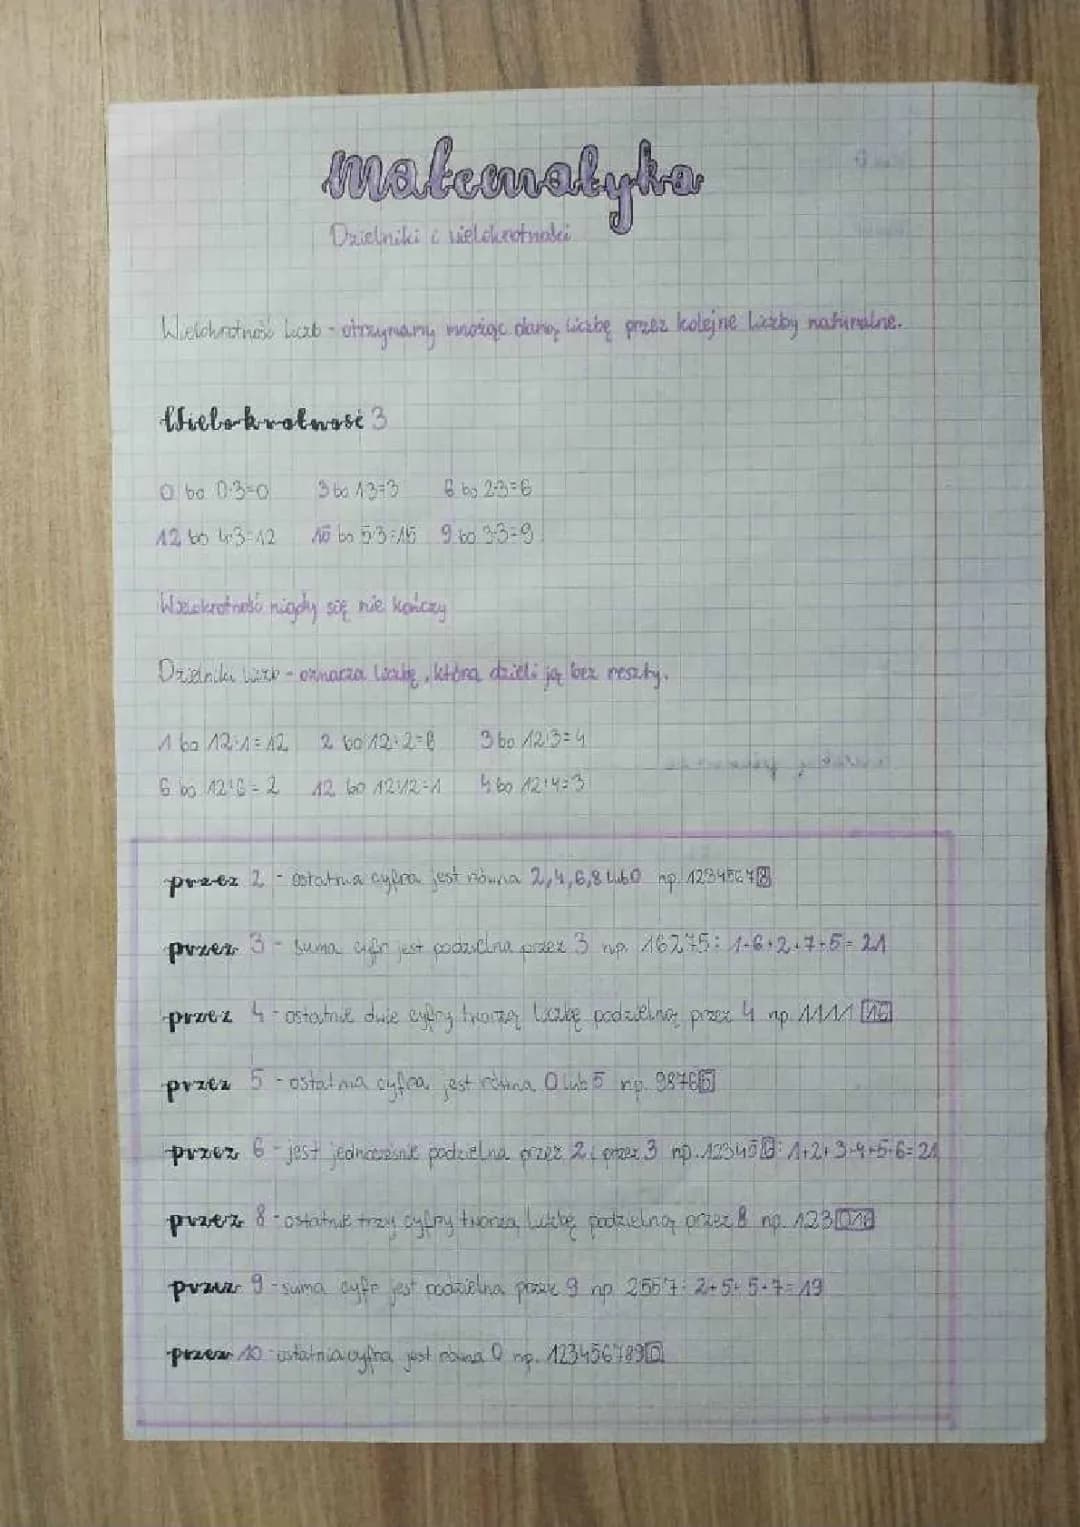 matematyka
Dzielniki i wielokrotności
Wielokrotność liczb - otrzymamy mnożąc daną liczbę przez kolejne liczby naturalne.
Wielokrotność 3
0 bo 0·3=0 3 bo 1·3=3 6 bo 2·3=6
12 bo 4·3=12 15 bo 5·3=15 9 bo 3·3=9
Wielokrotność nigdy się nie kończy
Dzielniki liczb - oznacza liczbę, która dzieli ją bez reszty.
1 bo 12:1=12 2 bo 12:2=6 3 bo 12:3=4
6 bo 12:6=2 12 bo 12:12=1 4 bo 12:4=3
przez 2 - ostatnia cyfra jest równa 2,4,6,8 lub 0 np. 12345678
przez 3 - suma cyfr jest podzielna przez 3 np. 16275: 1+6+2+7+5=21
przez 4 - ostatnie dwie cyfry tworzą liczbę podzielną przez 4 np. 1111 16
przez 5 - ostatnia cyfra jest równa 0 lub 5 np. 98765
przez 6 - jest jednocześnie podzielna przez 2 i przez 3 np. 123456: 1+2+3+4+5+6=21
przez 8 - ostatnie trzy cyfry tworzą liczbę podzielną przez 8 np. 123016
przez 9 - suma cyfr jest podzielna przez 9 np. 2557: 2+5+5+7=19
przez 10 - ostatnia cyfra jest równa 0 np. 1234567890